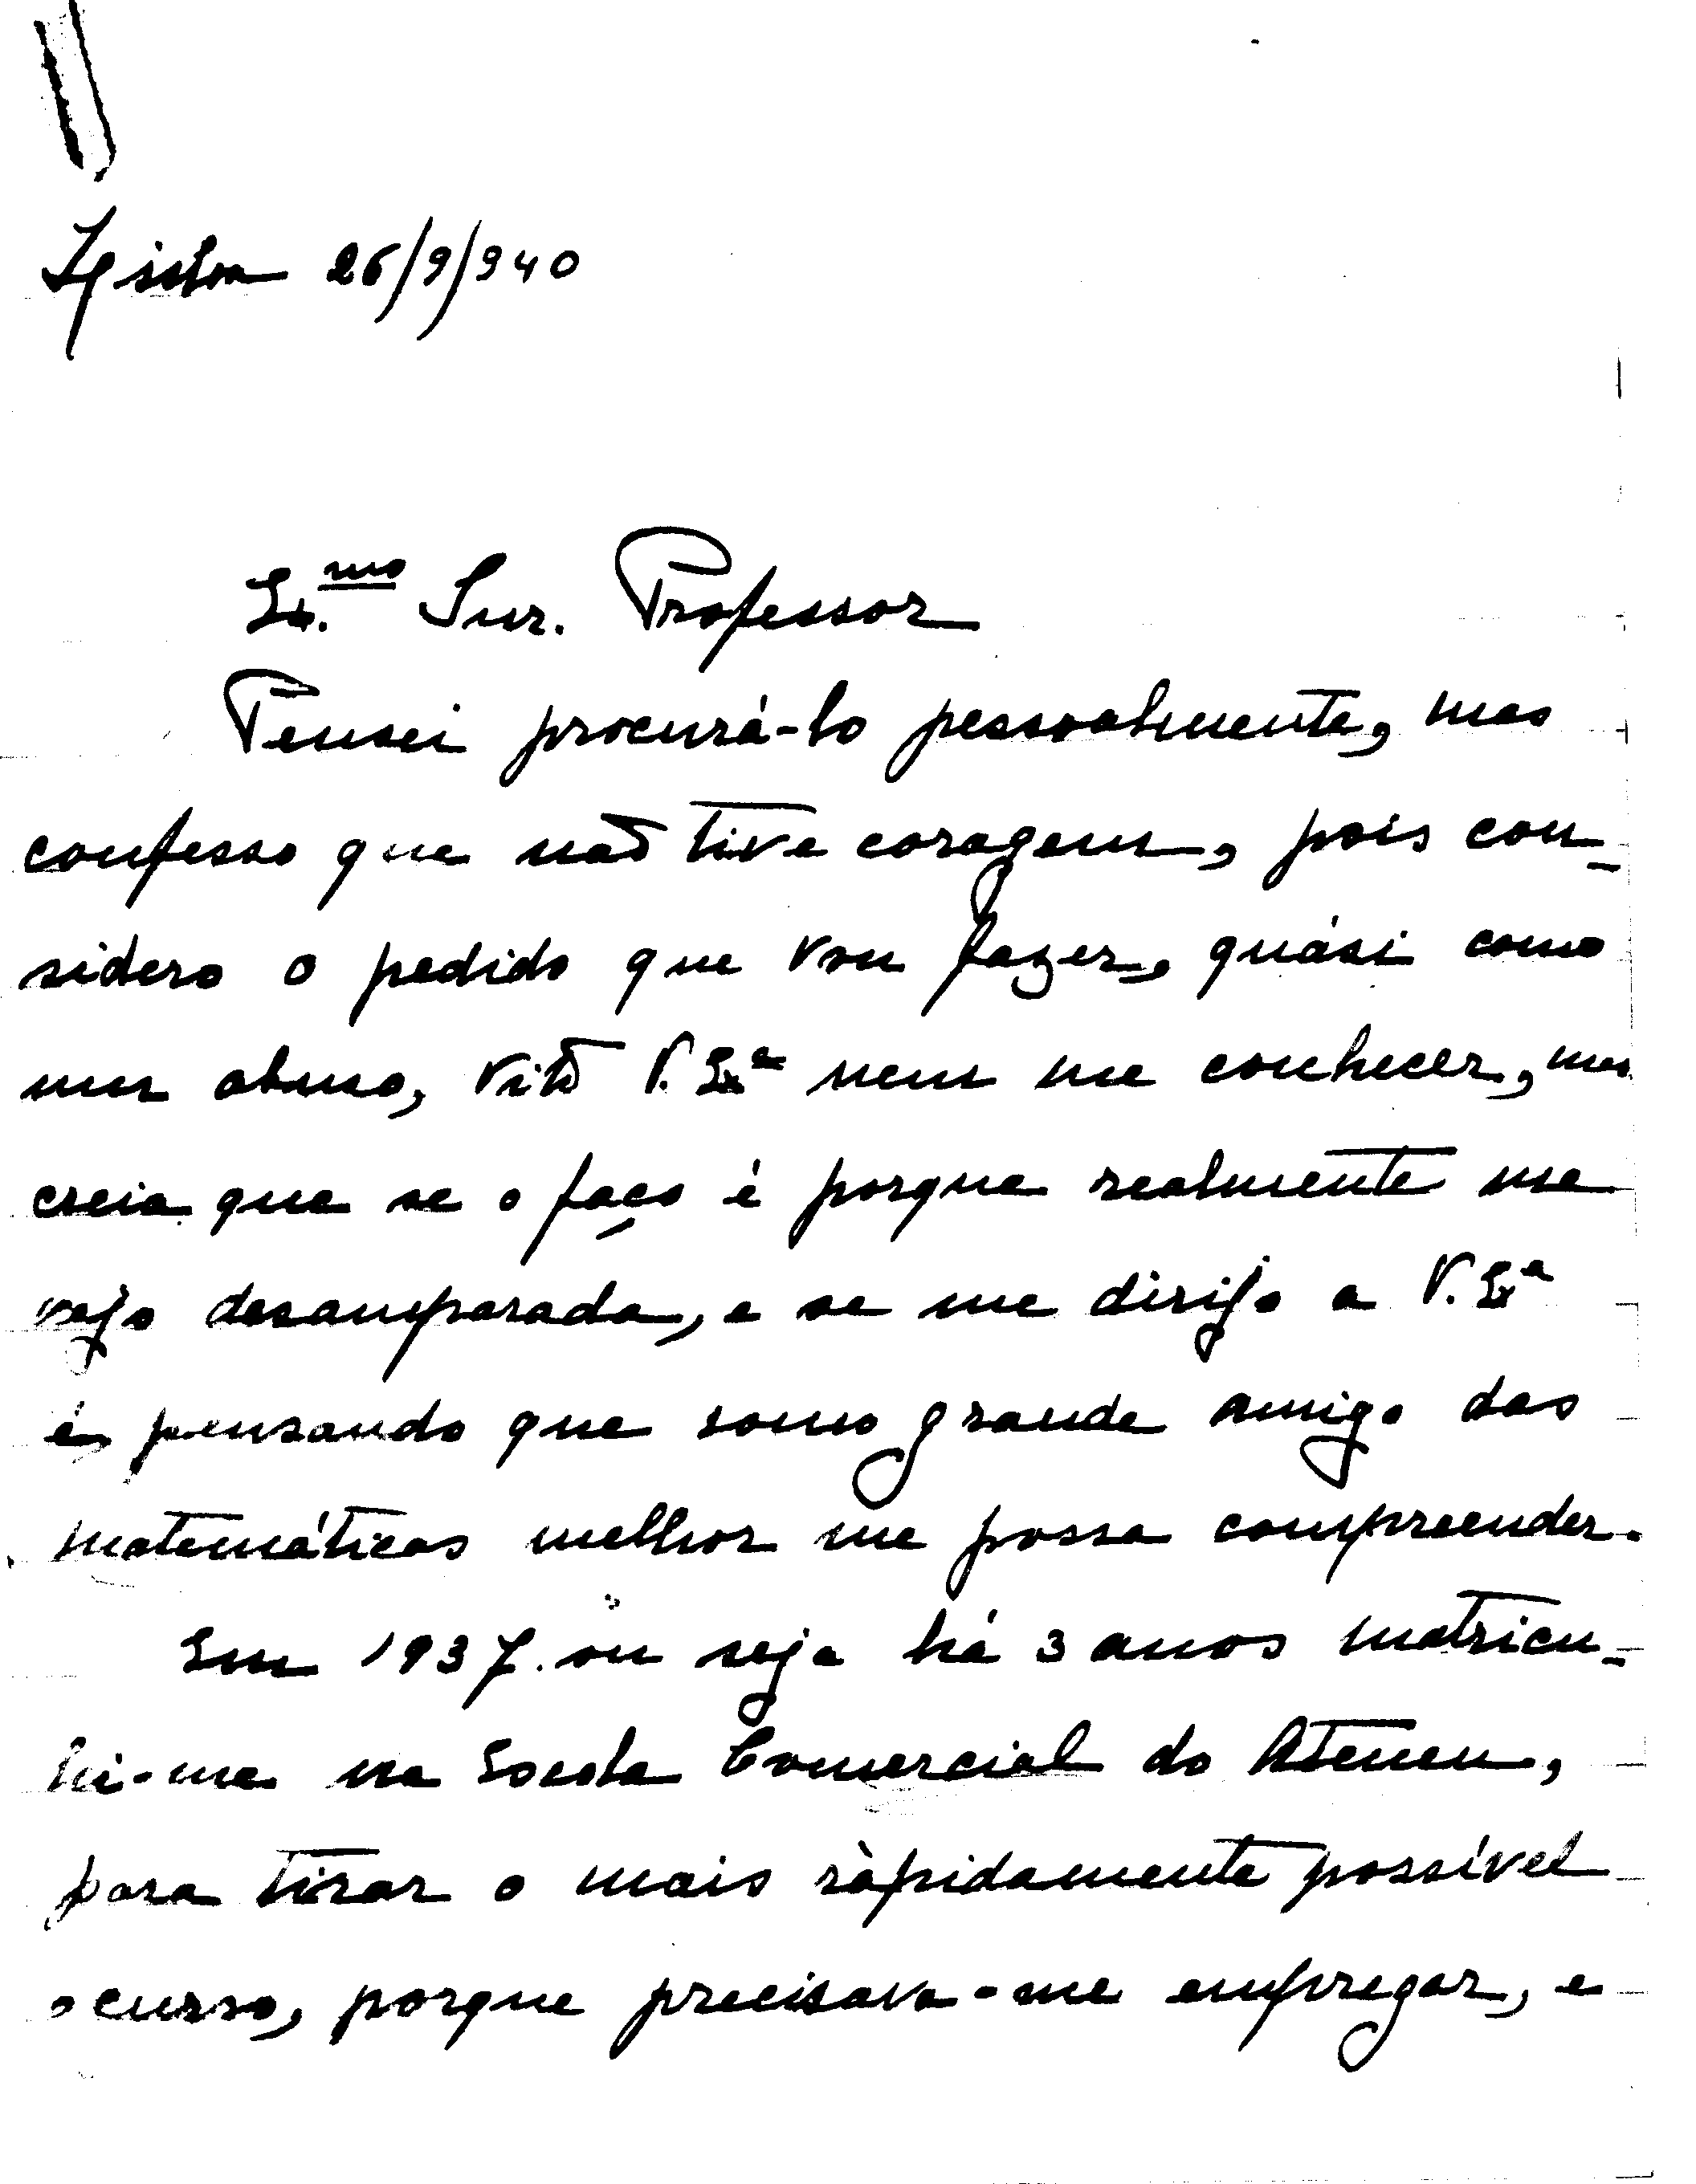 Lisboa 26/9/940
Ex.mo Snr. Professor
Pensei procurá-lo pessoalmente, mas
confesso que não tive coragem, pois con-
sidero o pedido que vou fazer, quási como
um abuso, visto V. Exª nem me conhecer, mas
creia que se o faço é porque realmente me
vejo desamparada, e se me dirijo a V. Exª
é, pensando que como grande amigo das
matemáticas melhor me possa compreender.
Em 1937 ou seja há 3 anos matricu-
lei-me na Escola Comercial do Ateneu,
para tirar o mais ràpidamente possível
o curso, porque precisava-me empregar, e